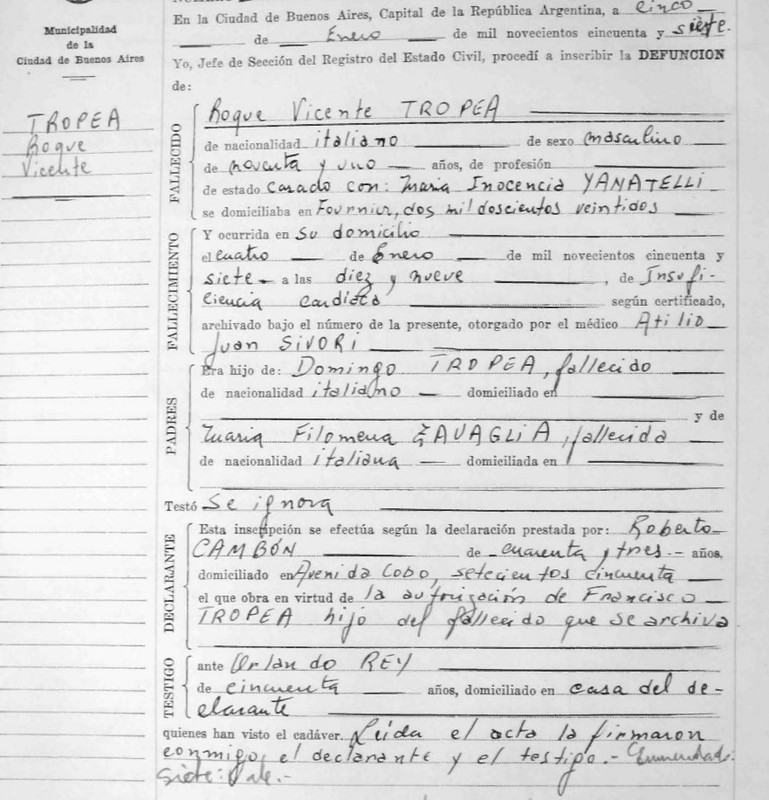 Municipalidad
de la
Ciudad de Buenos Aires
TROPEA
Roque
Vicente
En la Ciudad de Buenos Aires, Capital de la República Argentina, a cinco
de Enero de mil novecientos cincuenta y siete.
Yo, Jefe de Sección del Registro del Estado Civil, procedí a inscribir la DEFUNCION
de:
FALLECIDO
Roque Vicente TROPEA
de nacionalidad italiano de sexo masculino
de noventa y uno años, de profesión
de estado casado con: Maria Inocencia YANATELLI
se domiciliaba en Fournier, dos mil doscientos veintidos
FALLECIMIENTO
Y ocurrida en su domicilio
el cuatro de Enero de mil novecientos cincuenta y
siete a las diez y nueve, de Insufi-
ciencia cardiaca según certificado,
archivado bajo el número de la presente, otorgado por el médico Atilio
Juan SIVORI
PADRES
Era hijo de: Domingo TROPEA, fallecido
de nacionalidad italiano domiciliado en
y de
Maria Filomena ZAVAGLIA, fallecida
de nacionalidad italiana domiciliada en
Testó Se ignora
DECLARANTE
Esta inscripción se efectúa según la declaración prestada por: Roberto
CAMBÓN de cuarenta y tres.- años,
domiciliado en Avenida Cobo, setecientos cincuenta
el que obra en virtud de la autorización de Francisco
TROPEA hijo del fallecido que se archiva
TESTIGO
ante Orlando REY
de cincuenta años, domiciliado en casa del de-
clarante
quienes han visto el cadáver. Leida el acta la firmaron
conmigo, el declarante y el testigo.- Enmendado:
Siete: Vale.-